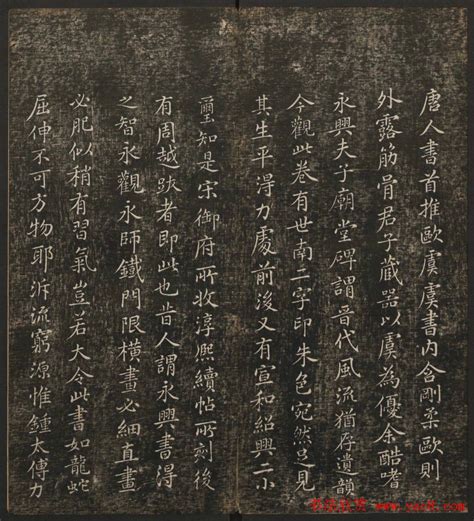 唐人書首推歐虞虞書内含剛柔歐則
外露筋骨君子藏器以虞為優余酷嗜
永興夫子廟堂碑謂晉代風流猶存遺韻
今觀此卷有世南二字印朱色宛然足見
其生平得力處前後又有宣和紹興二小
璽知是宋御府所收淳熙續帖所刻後
有周越跋者即此也昔人謂永興書得
之智永觀永師鐵門限橫畫必細直畫
必肥似稍有習氣豈若大令此書如龍蛇
屈伸不可方物耶泝流窮源惟鍾太傅力